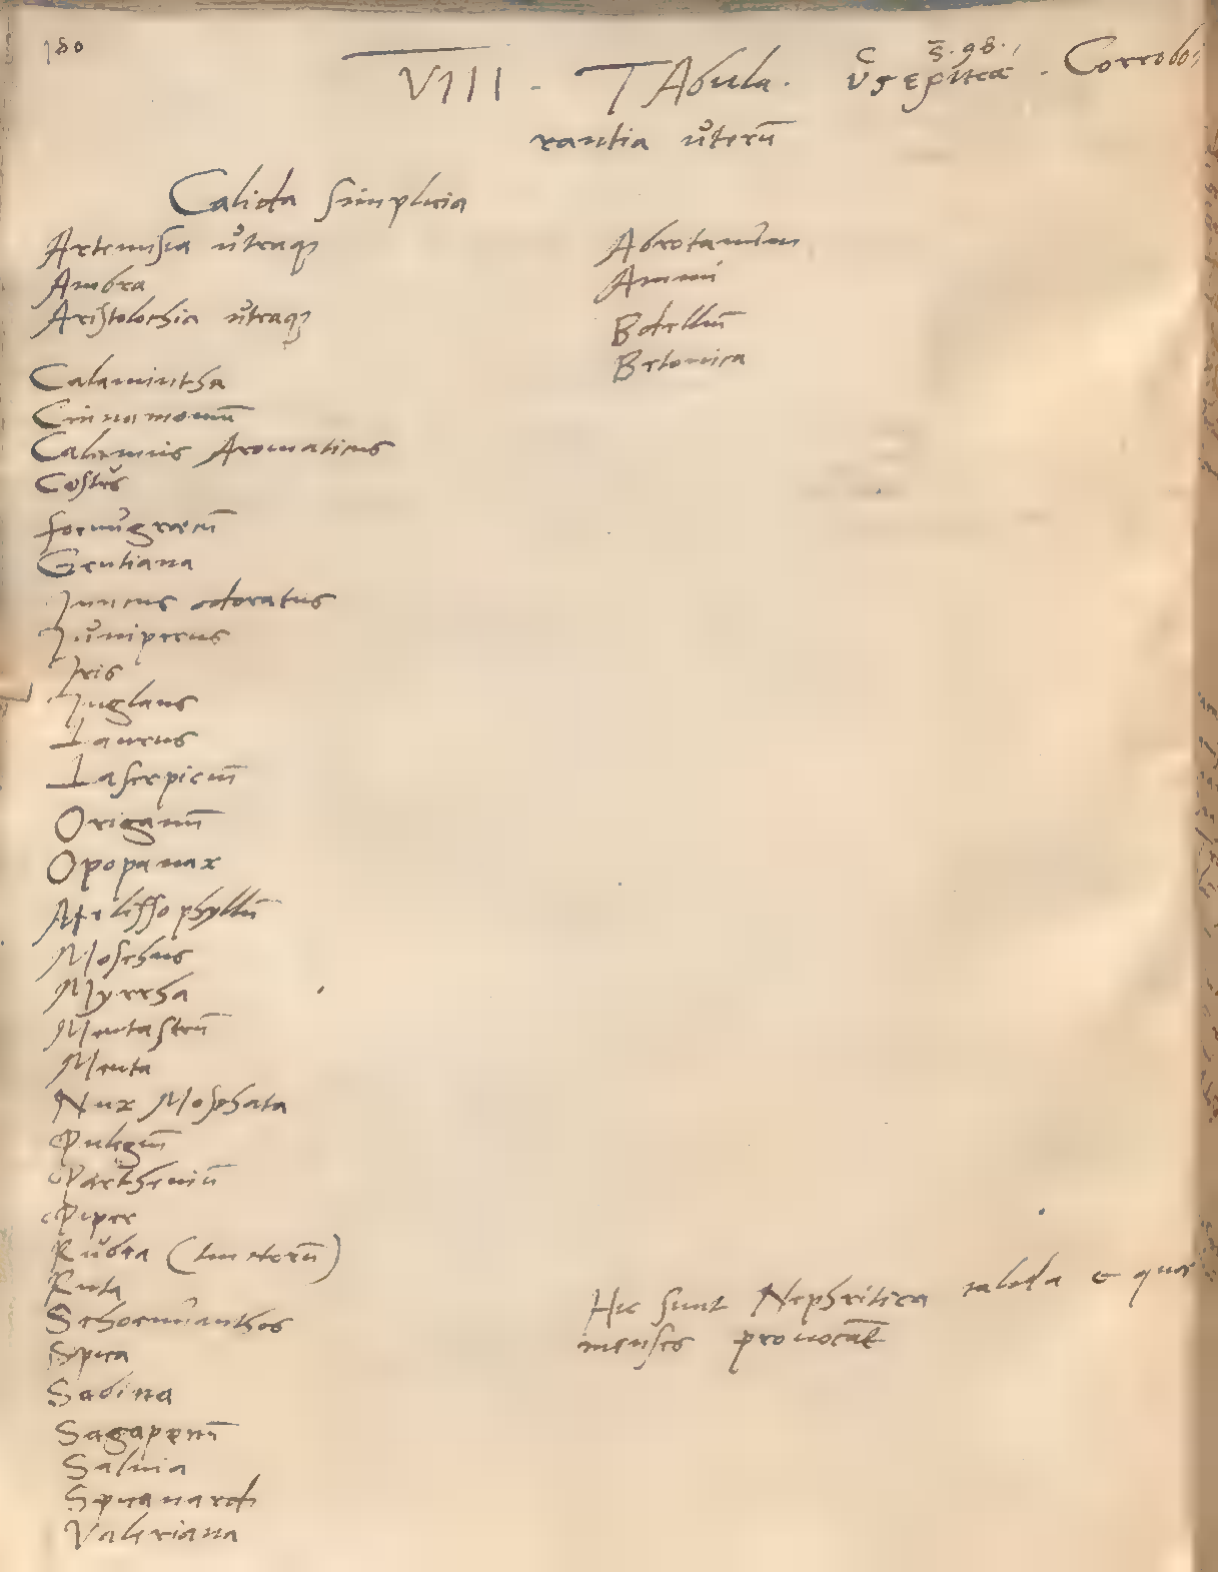 180
VIII. TAbula. Corrobo
rantia ůterū
Calida simplicia
Artemisia ůtraq
Ambra
Aristolochia ůtraq
Calamintha
Cinnamomū
Calamus Aromaticus
Costus
foenůgraecū
Gentiana
Juncus odoratus
Jůniperus
Iris
Juglans
Laurus
Laserpiciū
Origanū
Opopanax
Melissophyllū
Moschus
Myrrha
Mentastrū
Menta
Nux Moschata
Pulegiū
Partheniū
Piper
Růbea (tinctorū)
Ruta
Schoenůanthos
Spica
Sabina
Sagapenū
Salvia
Spicanardi
Valeriana
Abrotanům
Ammi
Bdelliū
Betonica
Hic sunt Nephritica calida e quae
menses provocāt